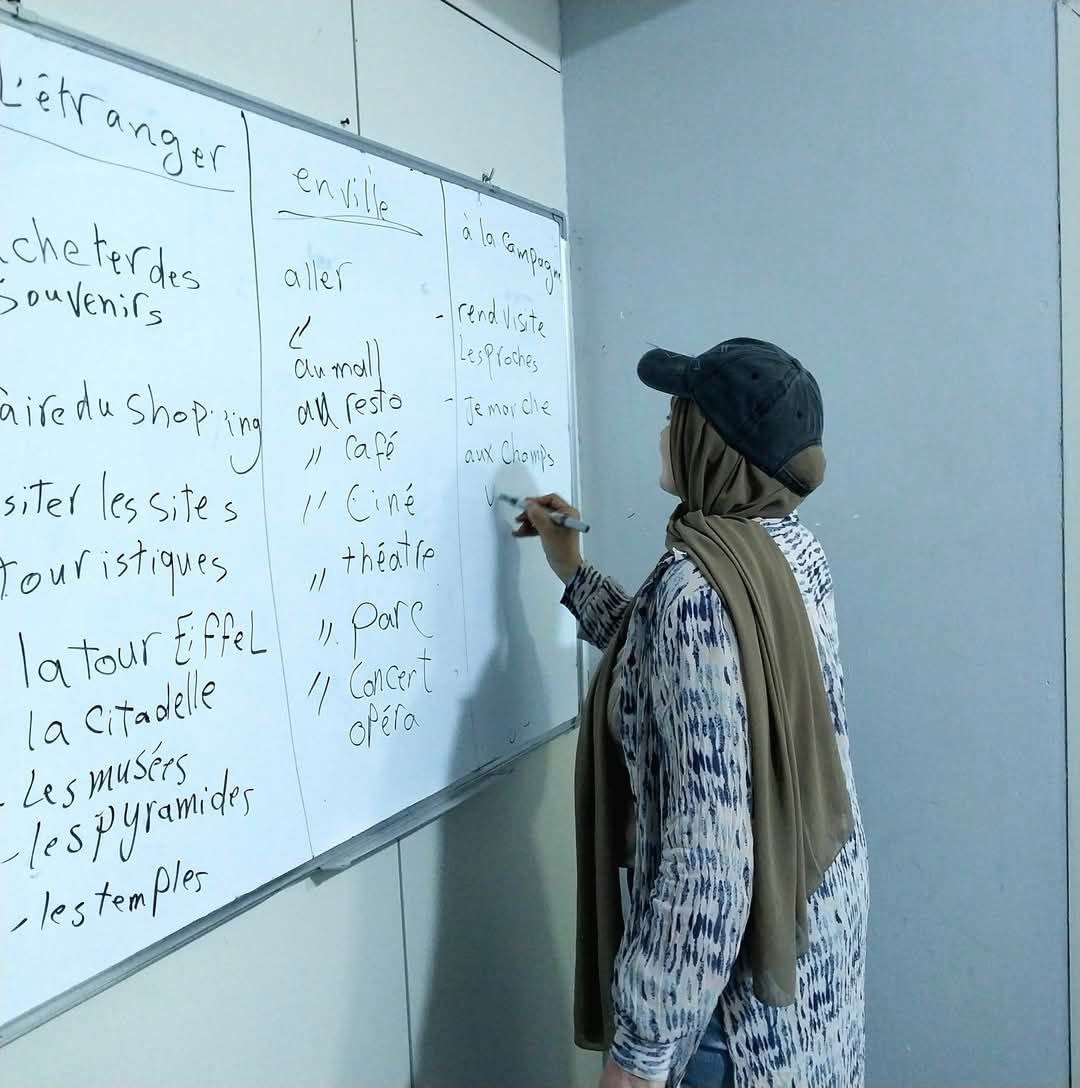 L'étranger
cheter des
souvenirs
aire du shopping
siter les sites
touristiques
la tour Eiffel
la citadelle
- Les musées
- les pyramides
- les temples
en ville
aller
au mall
au resto
" café
" Ciné
" théatre
" parc
" Concert
opéra
à la campagn
- rend visite
Les proches
- Je marche
aux champs